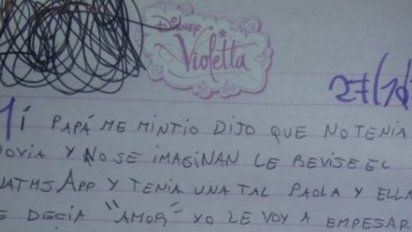 DISNEY
Violetta
27/10
Mi PAPÁ ME MINTIO DIJO QUE NO TENIA
OVIA Y NO SE IMAGINAN LE REVISE EL
ATHSAPP Y TENIA UNA TAL PAOLA Y ELLA
E DECIA "AMOR" YO LE VOY A EMPESAR